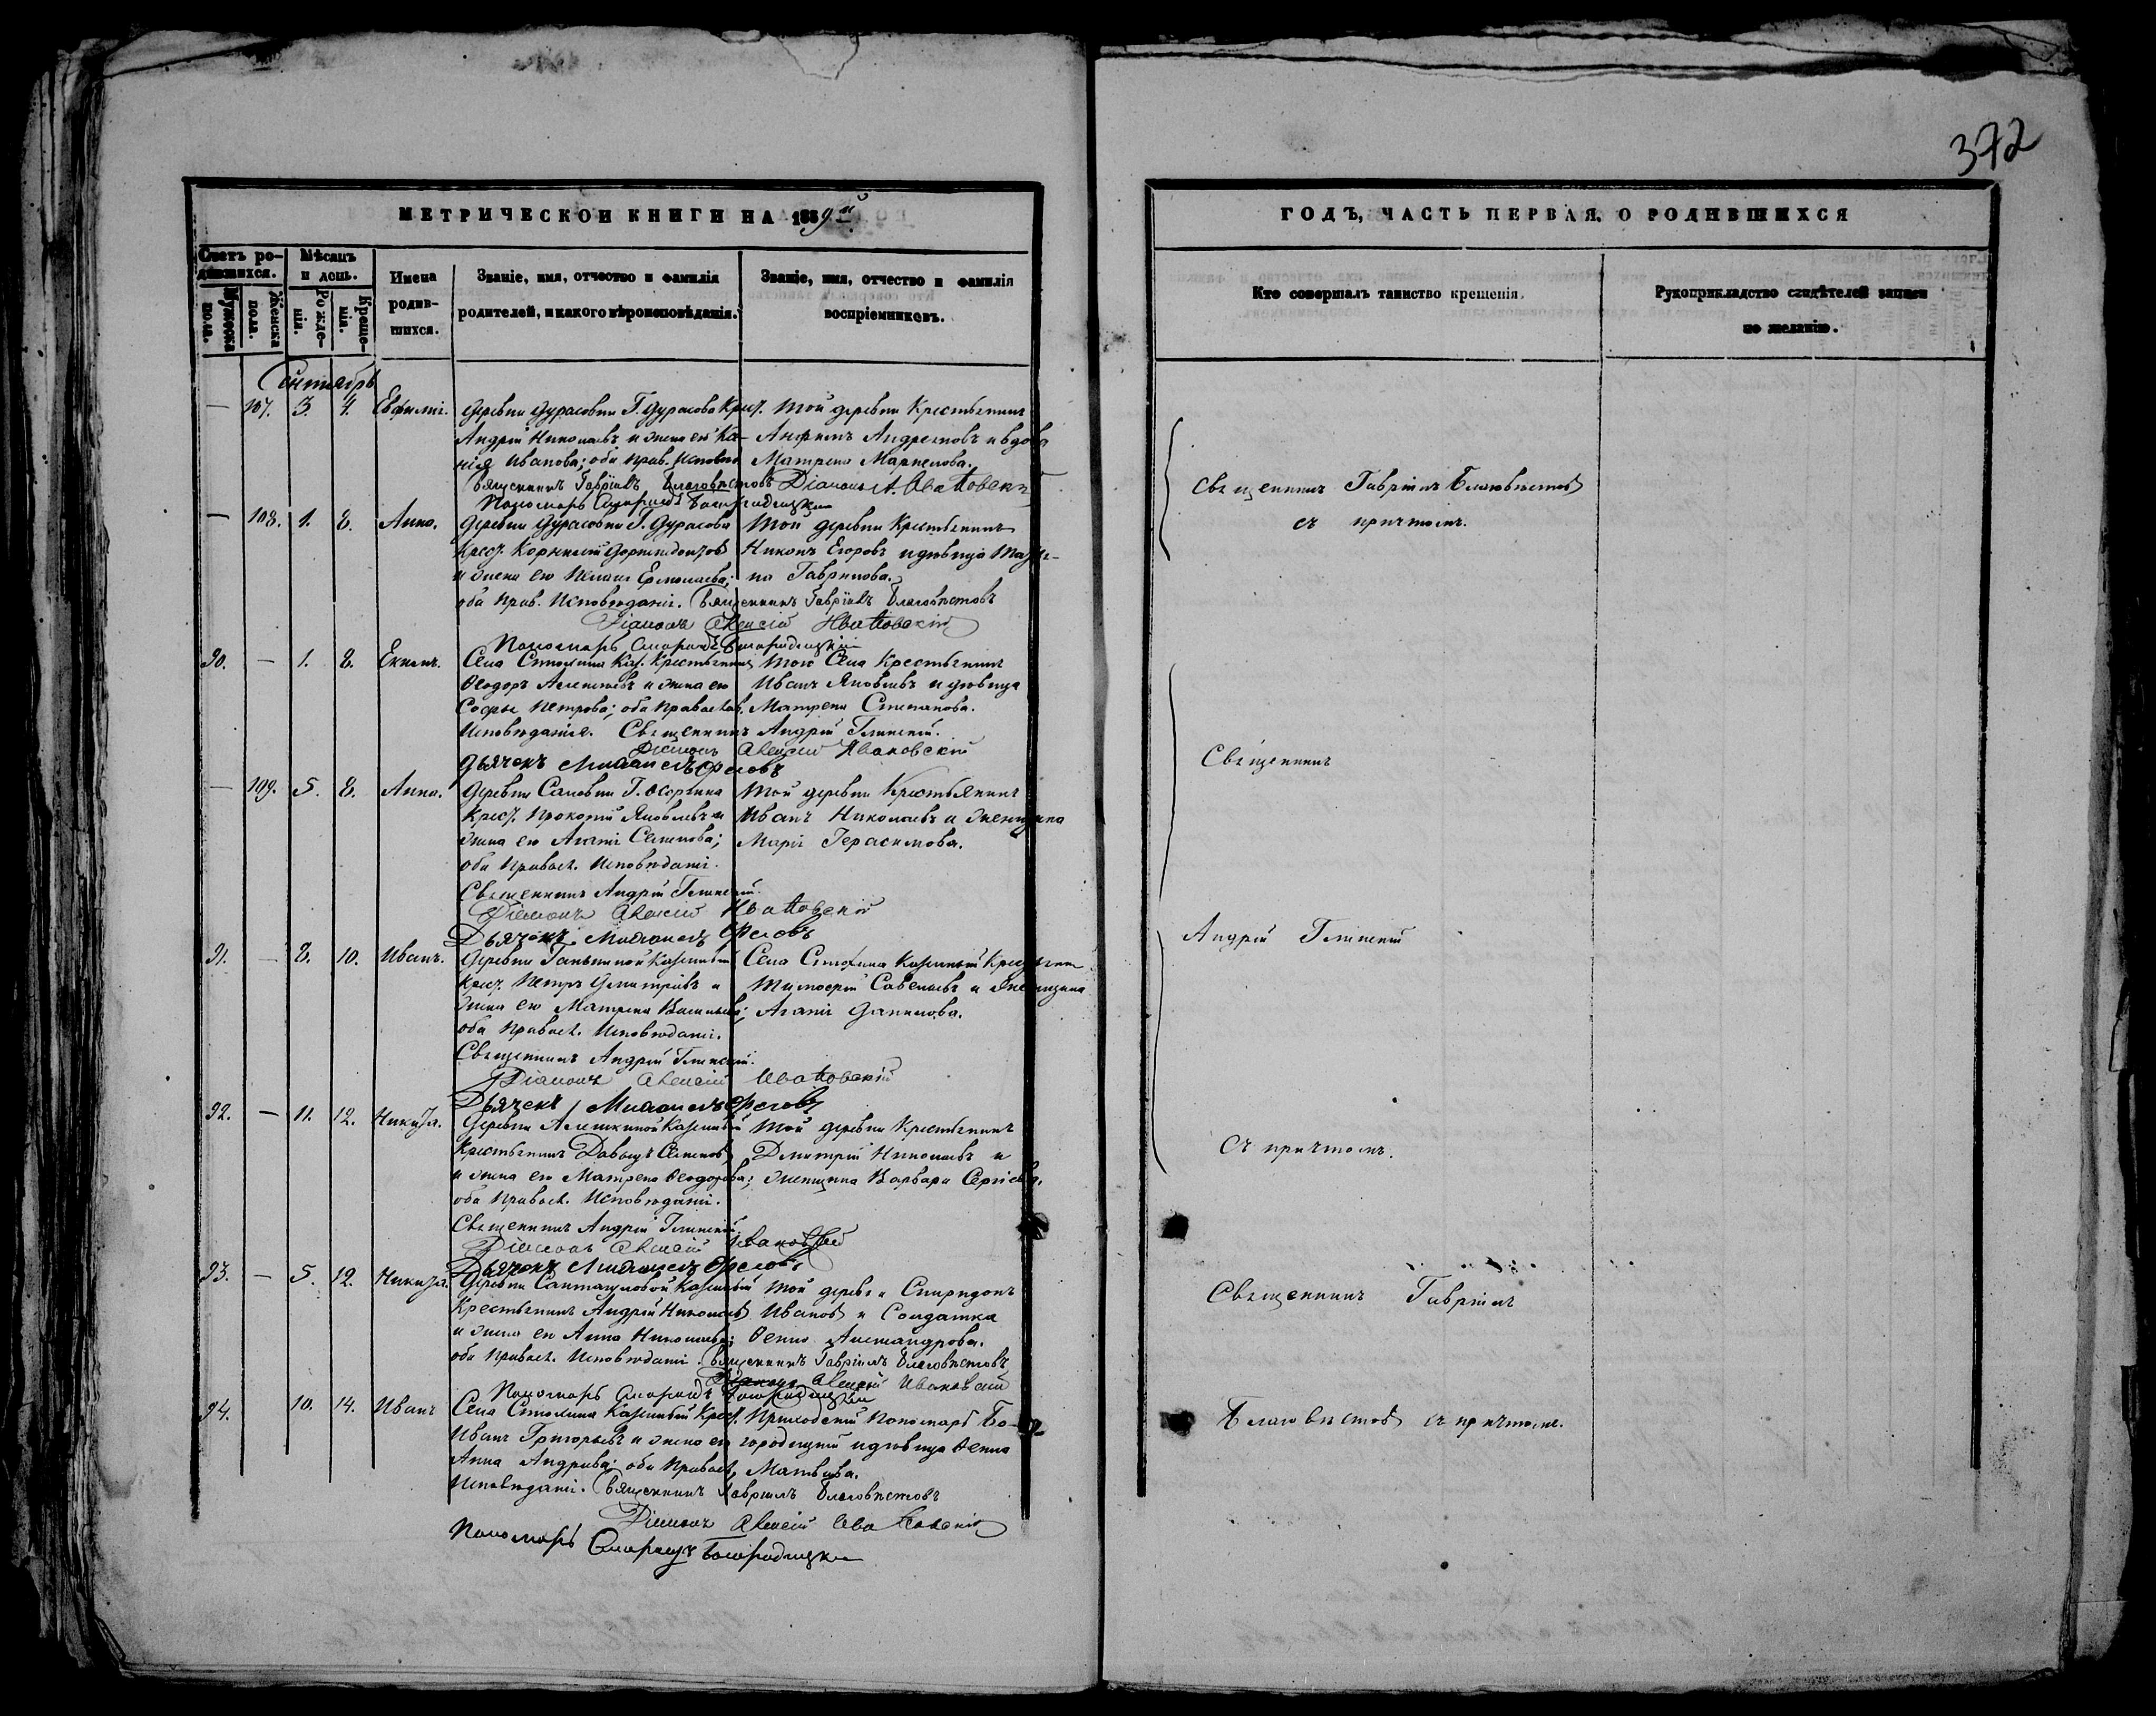 372
МЕТРИЧЕСКОЙ КНИГИ НА 1859й
Счетъ родившихся.
Мѣсяцъ и день.
Мужеска пола.
Женска пола.
Рожденія.
Крещенія.
Имена родившихся.
Званіе, имя, отчество и фамилія родителей, и какого вѣроисповѣданія.
Званіе, имя, отчество и фамилія воспріемниковъ.
Сентябрь
— 107. 3. 4.
деревни Дурасовки Г. Дурасова Крест.
Андрей Николаевъ и жена его
Иванова; оба прав. исповѣд
Той деревни Крестьянинъ
Анфимъ Андреяновъ и вдова
Матрена Маркелова.
Священникъ Гавріилъ Благовѣстовъ Діаконъ А. Ивановскій
Пономарь Богородицкій
— 108. 1. 8. Анна.
деревни Дурасовки Г. Дурасова
Крест. Корнилій
и жена его Ермолаева;
оба прав. Исповѣданія.
Той деревни Крестьянинъ
Никонъ Егоровъ и дѣвица
Гаврилова.
Священникъ Гавріилъ Благовѣстовъ
Діаконъ Алексій Ивановскій
Пономарь Богородицкій
90. — 1. 8.
Села Каз. Крестьянинъ
Ѳеодоръ Алексѣевъ и жена его
Софья Петрова; оба православ.
Исповѣданія.
Того Села Крестьянинъ
Иванъ Яковлевъ и дѣвица
Матрена Степанова.
Священникъ Андрей Глинскій.
Діаконъ Алексій Ивановскій
Дьячекъ Михаилъ Орловъ
— 109. 5. 8. Анна.
Деревни Саловки Г.
Крест. Прокопій Яковлевъ и
жена его Агапія Семенова;
оба правосл. Исповѣданія.
Той деревни Крестьянинъ
Иванъ Николаевъ и женщина
Марія Герасимова.
Священникъ Андрей Глинскій.
Діаконъ Алексій Ивановскій
Дьячекъ Михаилъ Орловъ
91. — 8. 10. Иванъ.
Деревни Ганькиной Казенный
Крест. Петръ Дмитріевъ и
жена его Матрена Васильева;
оба правосл. Исповѣданія.
Села Казенный Крестьянин
Тимофей Савельевъ и женщина
Агапія Данилова.
Священникъ Андрей Глинскій.
Діаконъ Алексій Ивановскій
Дьячекъ Михаилъ Орловъ
92. — 11. 12. Никита.
Деревни Алешкиной Казенный
Крестьянинъ Давыдъ Семенов
и жена его Матрена Ѳеодорова;
оба правосл. Исповѣданія.
Той деревни Крестьянинъ
Дмитрій Николаевъ и
женщина Варвара Сергіева.
Священникъ Андрей Глинскій
Діаконъ Алексій Ивановскій
Дьячекъ Михаилъ Орловъ
93. — 5. 12. Никита.
Деревни Казенный
Крестьянинъ Андрей Николаев
и жена его Анна Николаева;
оба правосл. Исповѣданія.
Той деревни Спиридонъ
Ивановъ и Солдатка
Александрова.
Священникъ Гавріилъ Благовѣстовъ
Діаконъ Алексій Ивановскій
Пономарь Богородицкій
94. 10. 14. Иванъ
Села Казенный Крест.
Иванъ Григорьевъ и жена его
Анна Андреева; оба правосл.
Исповѣданія.
Приходскій Пономарь Богородицкій и дѣвица
Матвѣева.
Священникъ Гавріилъ Благовѣстовъ
Діаконъ Алексій Ивановскій
Пономарь Богородицкій
ГОДЪ, ЧАСТЬ ПЕРВАЯ, О РОДИВШИХСЯ
Кто совершалъ таинство крещенія.
Рукоприкладство свидѣтелей записи по желанію.
Священникъ Гавріилъ Благовѣстовъ
съ причтомъ.
Священникъ
Андрей Глинскій
съ причтомъ.
Священникъ Гавріилъ
Благовѣстовъ съ причтомъ.